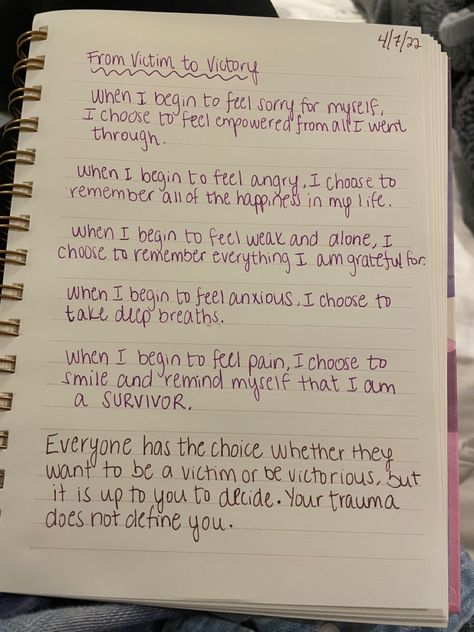 4/7/22
From Victim to Victory
When I begin to feel sorry for myself,
I choose to feel empowered from all I went
through.
When I begin to feel angry, I choose to
remember all of the happiness in my life.
When I begin to feel weak and alone, I
choose to remember everything I am grateful for.
When I begin to feel anxious, I choose to
take deep breaths.
When I begin to feel pain, I choose to
smile and remind myself that I am
a SURVIVOR.
Everyone has the choice whether they
want to be a victim or be victorious, but
it is up to you to decide. Your trauma
does not define you.